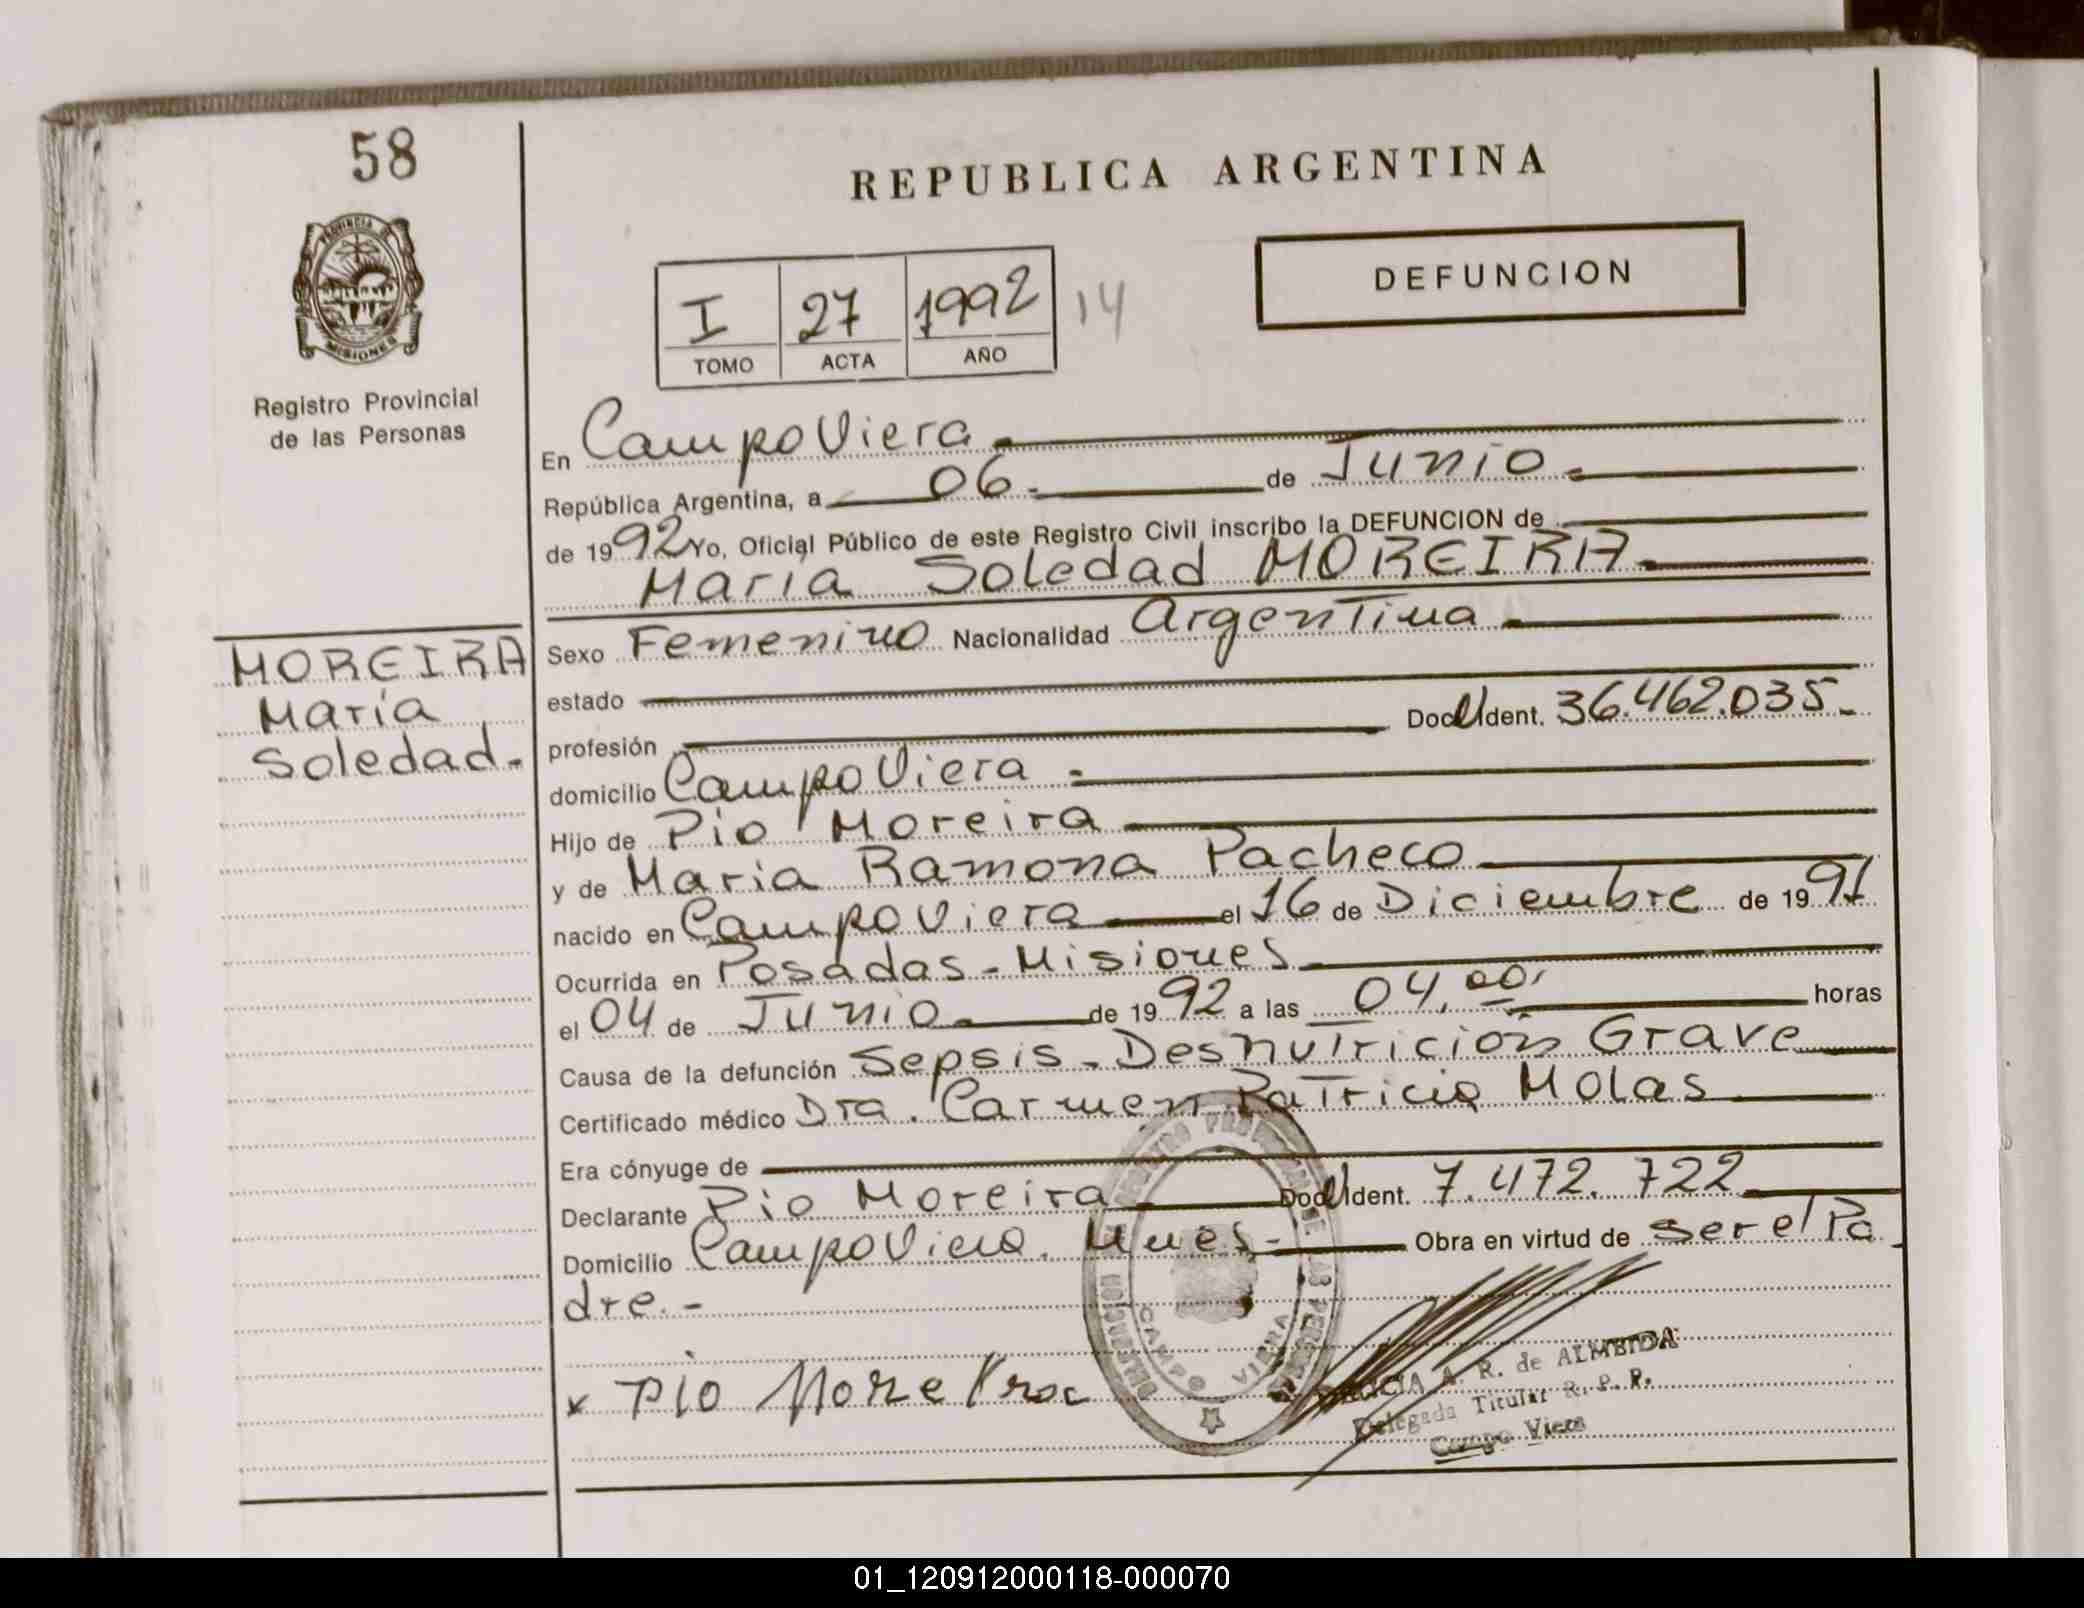 58
PROVINCIA DE
MISIONES
Registro Provincial
de las Personas
REPUBLICA ARGENTINA
DEFUNCION
I 27 1992 14
TOMO ACTA AÑO
En Campo Viera
República Argentina, a 06 de Junio
de 1992 Yo, Oficial Público de este Registro Civil inscribo la DEFUNCION de
María Soledad MOREIRA
MOREIRA
María
Soledad.
Sexo Femenino Nacionalidad Argentina
estado
profesión Doc. Ident. 36.462.035.
domicilio Campo Viera
Hijo de Pio Moreira
y de Maria Ramona Pacheco
nacido en Campo Viera el 16 de Diciembre de 1991
Ocurrida en Posadas - Misiones
el 04 de Junio de 1992 a las 04,00, horas
Causa de la defunción Sepsis - Desnutrición Grave
Certificado médico Dra. Carmen Patricia Molas
Era cónyuge de
Declarante Pio Moreira Doc. Ident. 7.472.722
Domicilio Campo Viera. Mnes- Obra en virtud de ser el Pa
dre.-
CAMPO VIERA
x Pio Moreira
A. R. de ALMEIDA
Delegada Titular R. P. P.
Campo Viera
01_120912000118-000070